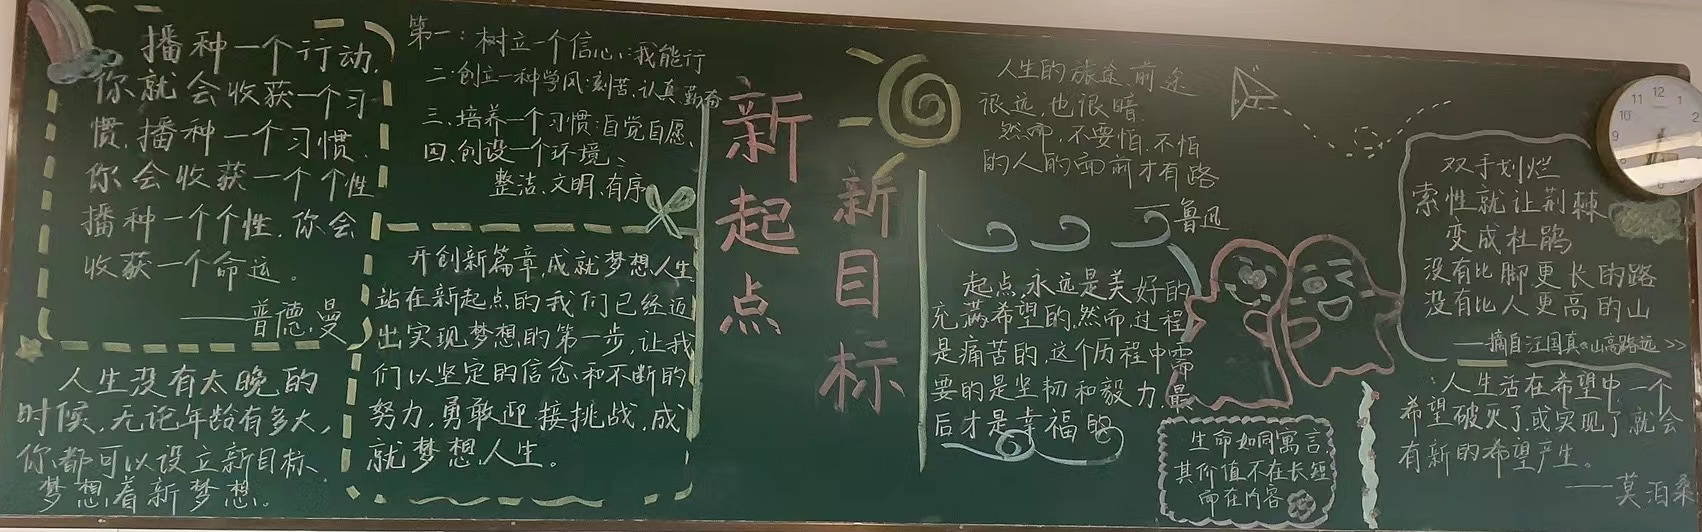 播种一个行动,
你就会收获一个习
惯,播种一个习惯,
你会收获一个个性
播种一个个性,你会
收获一个命运。
——普德曼
人生没有太晚的
时候,无论年龄有多大,
你都可以设立新目标、
梦想着新梦想。
第一:树立一个信心:我能行
二:创立一种学风:刻苦、认真、勤奋
三、培养一个习惯:自觉自愿、
四、创设一个环境、
整洁、文明、有序
开创新篇章,成就梦想人生
站在新起点的我们已经迈
出实现梦想的第一步,让我
们以坚定的信念和不断的
努力,勇敢迎接挑战,成
就梦想人生。
新起点
新目标
人生的旅途,前途
很远,也很暗,
然而,不要怕,不怕
的人的面前才有路
——鲁迅
起点永远是美好的
充满希望的,然而,过程
是痛苦的,这个历程中需
要的是坚韧和毅力,最
后才是幸福的
生命如同寓言,
其价值不在长短
而在内容
双手划烂
索性就让荆棘
变成杜鹃
没有比脚更长的路
没有比人更高的山
——摘自汪国真《山高路远》
人生活在希望中,一个
希望破灭了或实现了就会
有新的希望产生。
——莫泊桑
11 12 1
10 2
9
8